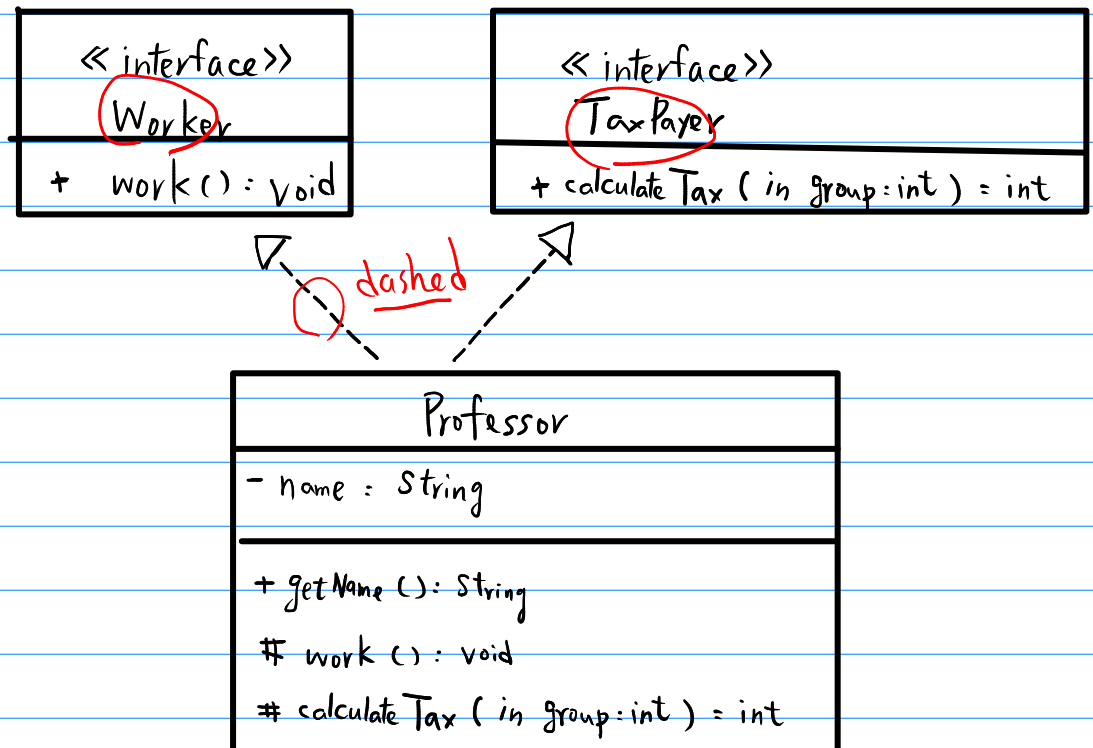 ≪ interface ≫
Worker
+ work ( ) : void
≪ interface ≫
TaxPayer
+ calculateTax ( in group : int ) = int
dashed
Professor
- name : String
+ getName ( ) : String
# work ( ) : void
# calculateTax ( in group : int ) = int